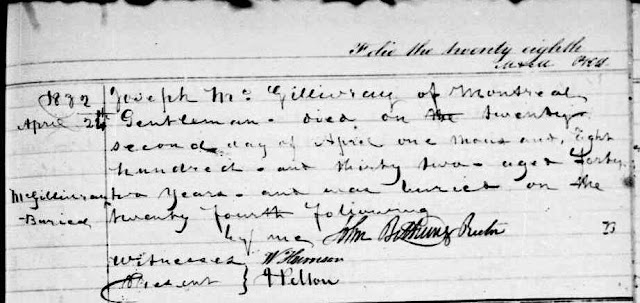 Folio the twenty eighth
1832 Joseph McGillivray of Montreal
April 24th Gentleman - died on the twenty
second day of April one thous and, Eight
hundred - and thirty two - aged Forty
McGillivray two Years - and was buried on the
Buried twenty fourth following
by me John Bethune Rector
Witnesses W Harrison
Present } J Pelton